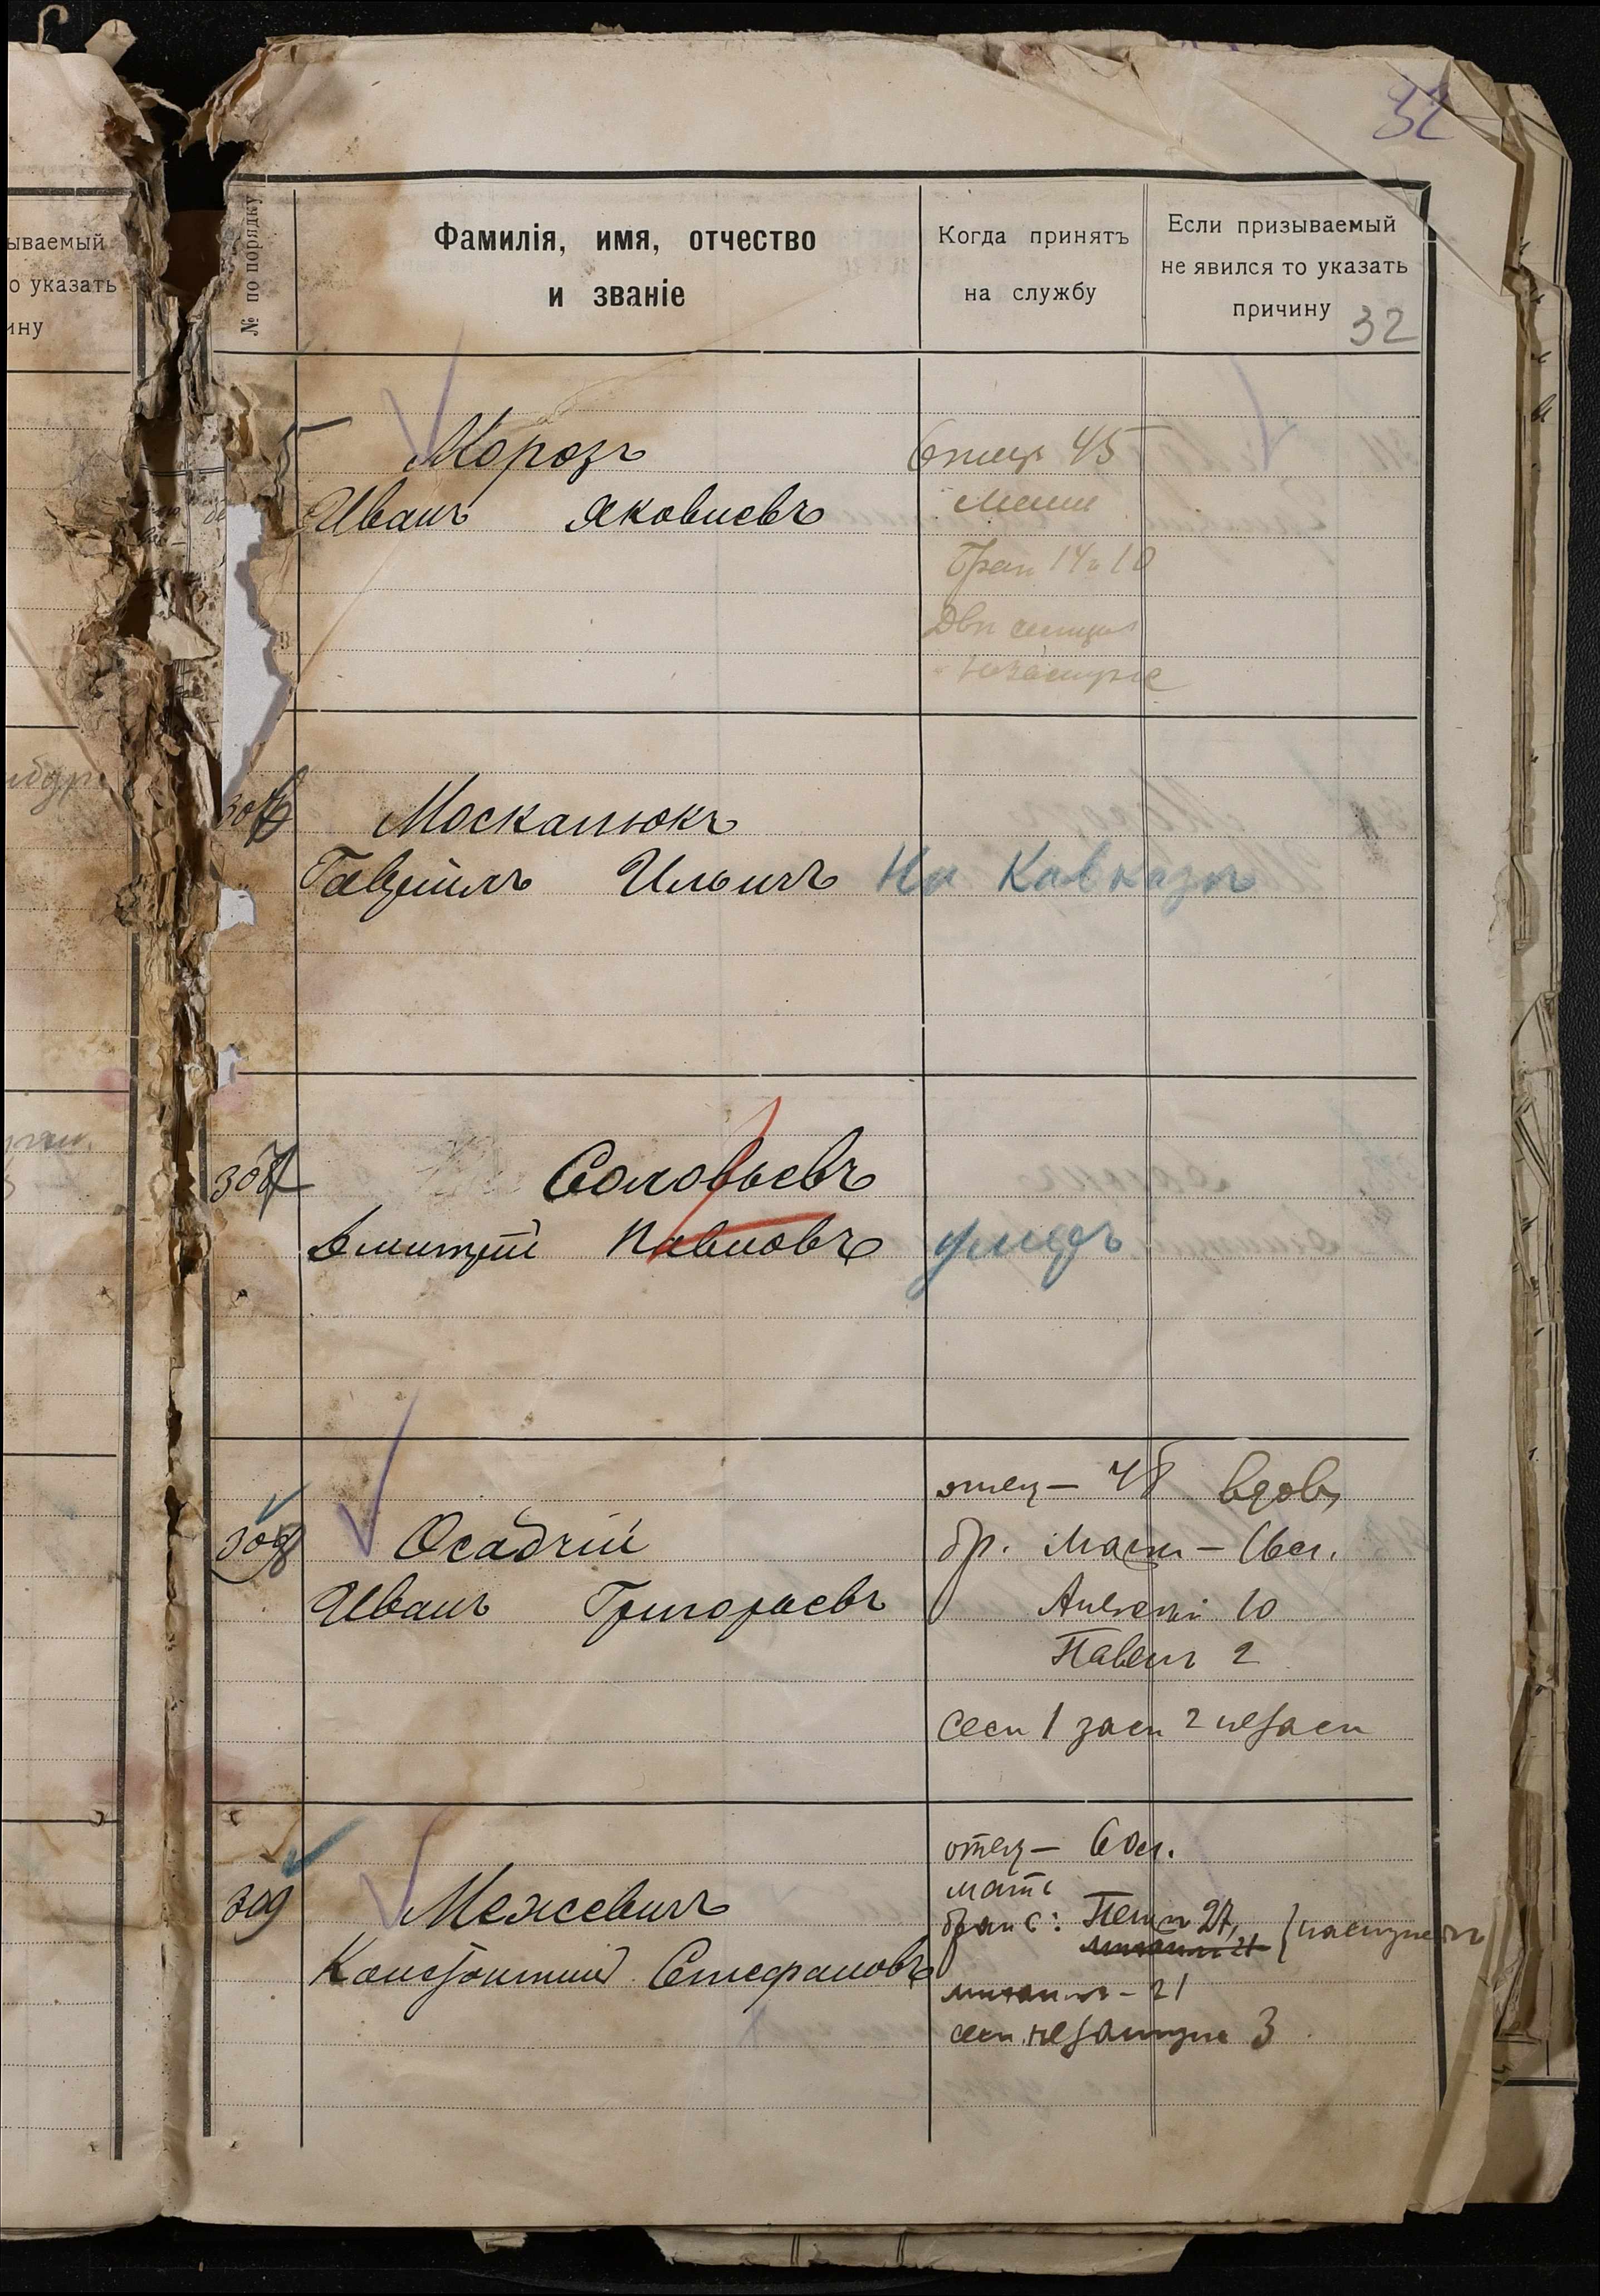 32
№ по порядку
Фамилія, имя, отчество
и званіе
Когда принятъ
на службу
Если призываемый
не явился то указать
причину
32
ываемый
о указать
ину
5
Морозъ
Иванъ Яковлевъ
Отецъ 45
Брат 14 и 10
Две сестры
незамуж
306
Москалюкъ
Гавріилъ Ильичъ
На Кавказѣ
307
Соловьевъ
Дмитрій Павловъ
умеръ
308
Осадчій
Иванъ Григорьевъ
отец – 48 вдов
бр. – 16 л.
Алексей 10
Павелъ 2
сест 1 зам 2 незам
309
Межевичъ
Константинъ Стефановъ
отец – 60 л.
мать
брат : Петръ 27,
Михаилъ 21
Михаилъ – 21
сест. незамуж 3